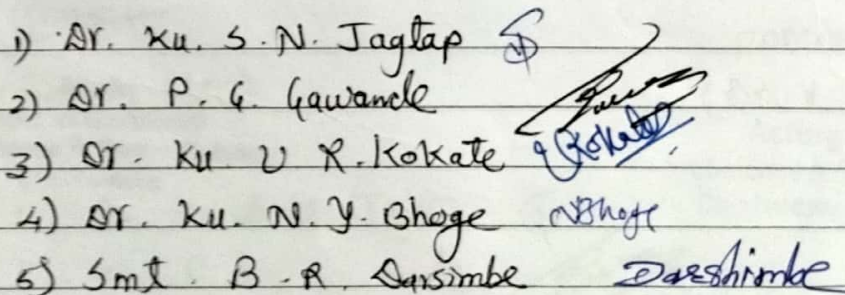 1) Dr. Ku. S. N. Jagtap
2) Dr. P. G. Gawande
3) Dr. Ku. U R. Kokate UKokate
4) Dr. Ku. N. Y. Bhoge NBhoge
5) Smt. B. R. Darsimbe Darshimbe